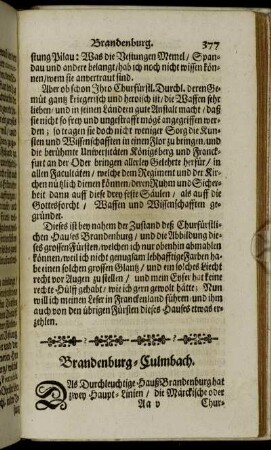 Brandenburg. 377
stung Pilau: Was die Vestungen Memel/ Span-
dau und andere belangt/ hab ich noch nicht wissen kön-
nen/ wem sie anvertraut sind.
Aber ob schon Ihro Churfürstl. Durchl. deren Ge-
müt gantz kriegerisch und heroisch ist/ die Waffen sehr
lieben/ und in seinen Landen gute Anstalt macht/ daß
sie nicht so frey und ungestrafft mögē angegriffen wer-
den; so tragen sie doch nicht weniger Sorg die Kün-
sten und Wissenschafften in einen Flor zu bringen/ und
die berühmte Universitäten Königsberg und Franck-
furt an der Oder bringen allerley Gelehrte herfür/ in
allen Facultäten/ welche dem Regiment und der Kir-
chen nützlich dienen können/ deren Ruhm und Sicher-
heit dann auff diese drey feste Säulen/ als auff die
Gottesforcht/ Waffen und Wissenschafften ge-
gründet.
Dieses ist bey nahem der Zustand deß Churfürstli-
chen Hauses Brandenburg/ und die Abbildung die-
ses grossen Fürsten/ welchen ich nur obenhin abmahlen
können/ weil ich nicht genugsam lebhafftige Farben ha-
be einen solchen grossen Glantz/ und ein solches Liecht
recht vor Augen zu stellen/ und mein Eyfer hat keine
rechte Hülff gehabt/ wie ich gern gewolt hätte. Nun
will ich meinen Leser in Franckenland führen und ihm
auch von den übrigen Fürsten dieses Hauses etwas er-
zehlen.
Brandenburg-Culmbach.
DAs Durchleuchtige Hauß Brandenburg hat
zwey Haupt-Linien/ die Märckische oder
Aa v Chur-